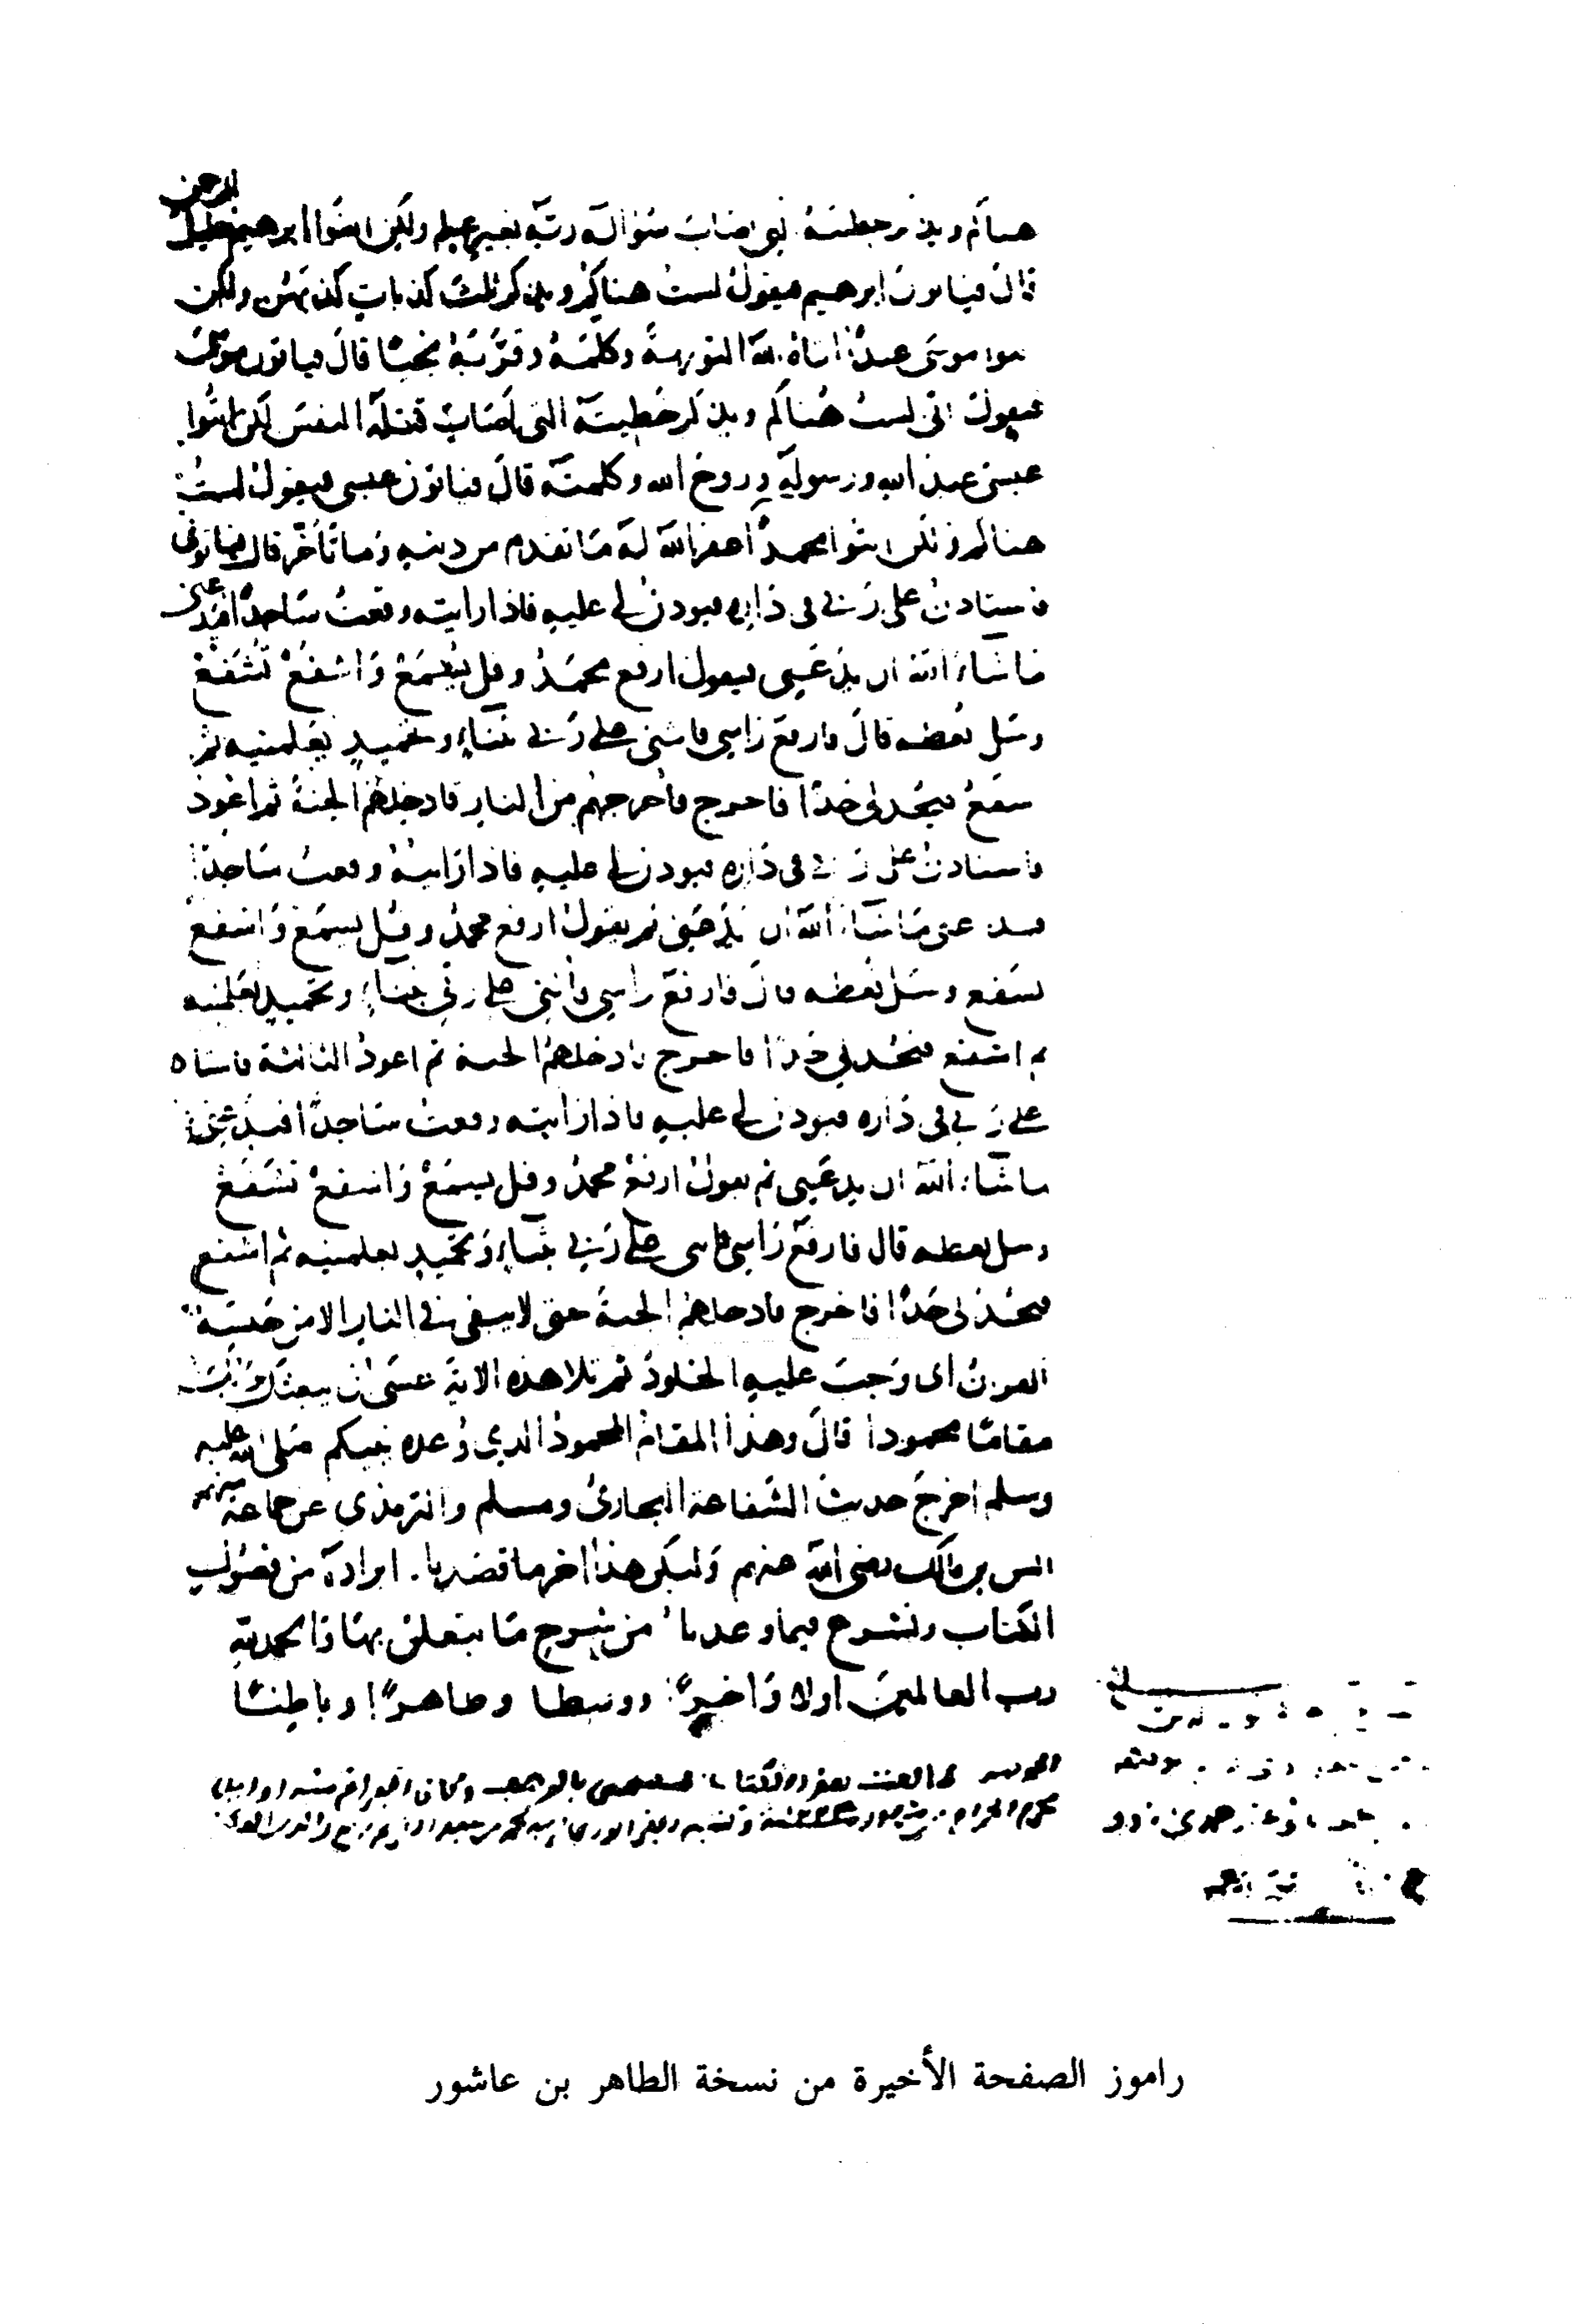 الرحمن
هناكم ويذكر خطيئته التي اصاب سؤاله ربه بغير علم ولكن ائتوا ابرهيم خليل
قال فياتون ابرهيم فيقول لست هناكم ويذكر ثلث كذبات كذبهن ولكن
ائتوا موسى عبدًا اتاه الله التورية وكلمه وقربه نجيا قال فياتون موسى
فيقول اني لست هناكم ويذكر خطيئته التي اصاب قتله النفس لكن ائتوا
عيسى عبد الله ورسوله وروح الله وكلمته قال فياتون عيسى فيقول لست
هناكم ولكن ائتوا محمدًا غفر الله له ما تقدم من ذنبه وما تأخر قال فياتوني
فاستاذن على ربي في داره فيوذن لي عليه فاذا رايته وقعت ساجدًا فيدعني
ما شاء الله ان يدعني فيقول ارفع محمد وقل يسمع واشفع تشفع
وسل تعطه قال فارفع راسي فاثني على ربي بثناء وتحميد يعلمنيه ثم
اشفع فيحد لي حدًا فاخرج فأخرجهم من النار فادخلهم الجنة ثم اعود
فاستاذن على ربي في داره فيوذن لي عليه فاذا رايته وقعت ساجدًا
فيدعني ما شاء الله ان يدعني ثم يقول ارفع محمد وقل يسمع واشفع
تشفع وسل تعطه قال فارفع راسي فاثني على ربي بثناء وتحميد يعلمنيه
ثم اشفع فيحد لي حدًا فاخرج فادخلهم الجنة ثم اعود الثالثة فاستاذن
على ربي في داره فيوذن لي عليه فاذا رايته وقعت ساجدًا فيدعني
ما شاء الله ان يدعني ثم يقول ارفع محمد وقل يسمع واشفع تشفع
وسل تعطه قال فارفع راسي فاثني على ربي بثناء وتحميد يعلمنيه ثم اشفع
فيحد لي حدًا فاخرج فادخلهم الجنة حتى لا يبقى في النار الا من حبسه
القران اى وجب عليه الخلود ثم تلا هذه الاية عسى ان يبعثك ربك
مقامًا محمودا قال وهذا المقام المحمود الذي وعده نبيكم صلى الله عليه
وسلم اخرج حديث الشفاعة البخارى ومسلم والترمذى عن جماعة منهم
انس بن مالك رضى الله عنهم وليكن هذا اخر ما قصدنا ايراده من فصول
الكتاب ونشرع فيما وعدنا من شرح ما يتعلق بها والحمد لله
رب العالمين اولا واخيرًا ووسطا وظاهرًا وباطنًا
راموز الصفحة الأخيرة من نسخة الطاهر بن عاشور